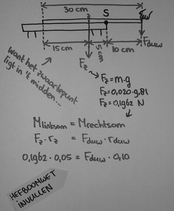 30 cm
S
15 cm
5 cm
10 cm
Fduw
Want het zwaartepunt
ligt in 't midden...
Fz
Fz = m·g
Fz = 0,020·9,81
Fz = 0,1962 N
Mlinksom = Mrechtsom
Fz · rz = Fduw · rduw
0,1962 · 0,05 = Fduw · 0,10
HEFBOOMWET
INVULLEN